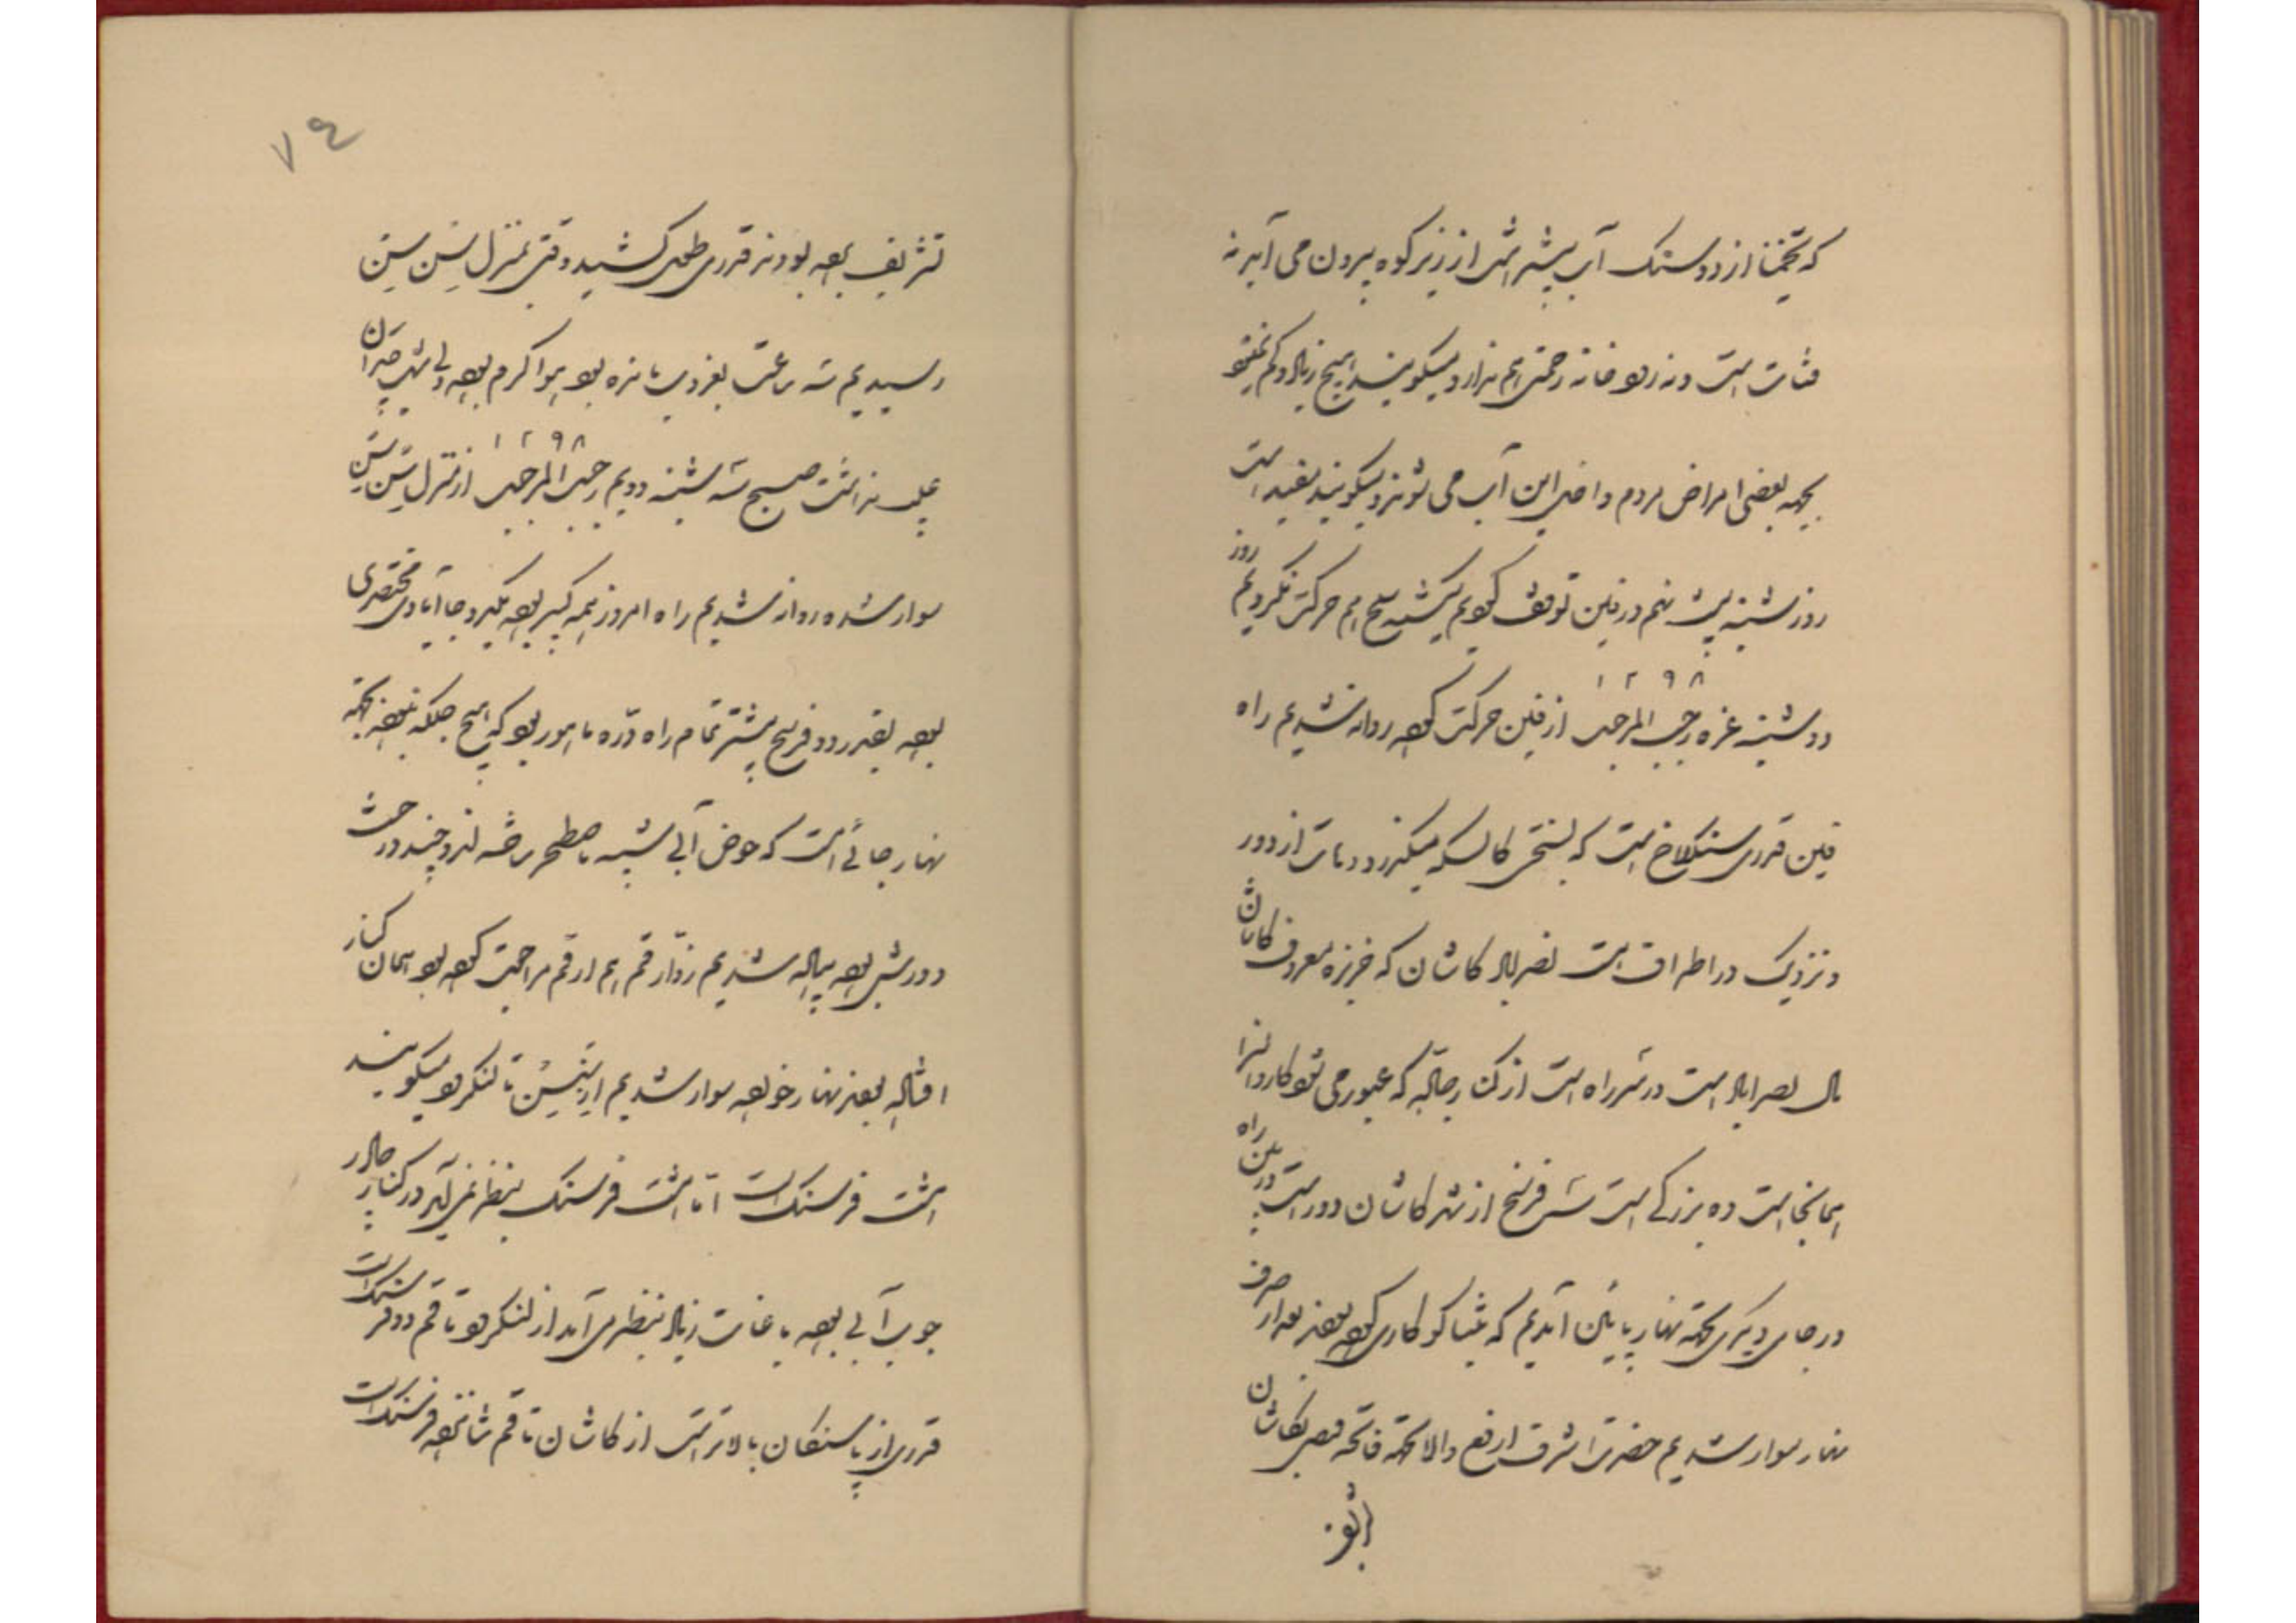 که تخمینا از دو سنگ آب بیشتر است از زیر کوه بیرون می آید نه
قنات است و نه رودخانه زحمتی هم ندارد میگویند هیچ زیاد و کم نمیشود
بجهه بعضی امراض مردم داخل این آب می شوند و میگویند مفید است
روز شنبه بیست نهم در فین توقف کرده یکشنبه سلخ هم حرکت نکردیم روز
دوشنبه غره رجب المرجب ۱۲۹۸ از فین حرکت کرده روانه شدیم راه
فین قدری سنگلاخ است که بسختی کالسکه میگذرد دهات از دور
و نزدیک در اطراف است نصرآباد کاشان که خربزه معروف کاشان
مال نصرآباد است در سر راه است از کنارجاده که عبور می شود کاروانسرا
همانجا است ده بزرگی است شش فرسخ از شهر کاشان دور است در بین راه
در جای دیگری بجهة نهار پایین آمدیم که تنباکو کاری کرده بودند بعد از صرف
نهار سوار شدیم حضرت اشرف ارفع والا بجهة فاتحه قصر بکاشان
تشریف برده بودند قدری طول کشید وقتی بمنزل سن سن
رسیدیم سه ساعت بغروب مانده بود هوا گرم بود ولی شب چندان
عیب نداشت صبح سه شنبه دویم رجب المرجب ۱۲۹۸ از منزل سن سن
سوار شده روانه شدیم راه امروز همه کویر بود یکی دو جا آبادی مختصری
بود بقدر دو فرسخ بیشتر تمام راه دره ماهور بود که هیچ جلگه نبود بجهة
نهار جائی است که حوض آبی شبیه باصطخر ساخته اند و چند درخت
دورش بود پیاده شدیم زوار قم هم از قم مراجعت کرده بود همان کنار
افتاده بودند نهار خورده سوار شدیم از سن سن تا لنگرود میگویند
هشت فرسنگ است اما هشت فرسنگ بنظر نمی آید در کنار جاده
جوب آبی بود باغات زیاد بنظر می آمد از لنگرود تا قم دو فرسنگ است
قدری از پاسنگان بالاتر است از کاشان تا قم شانزده فرسنگ است